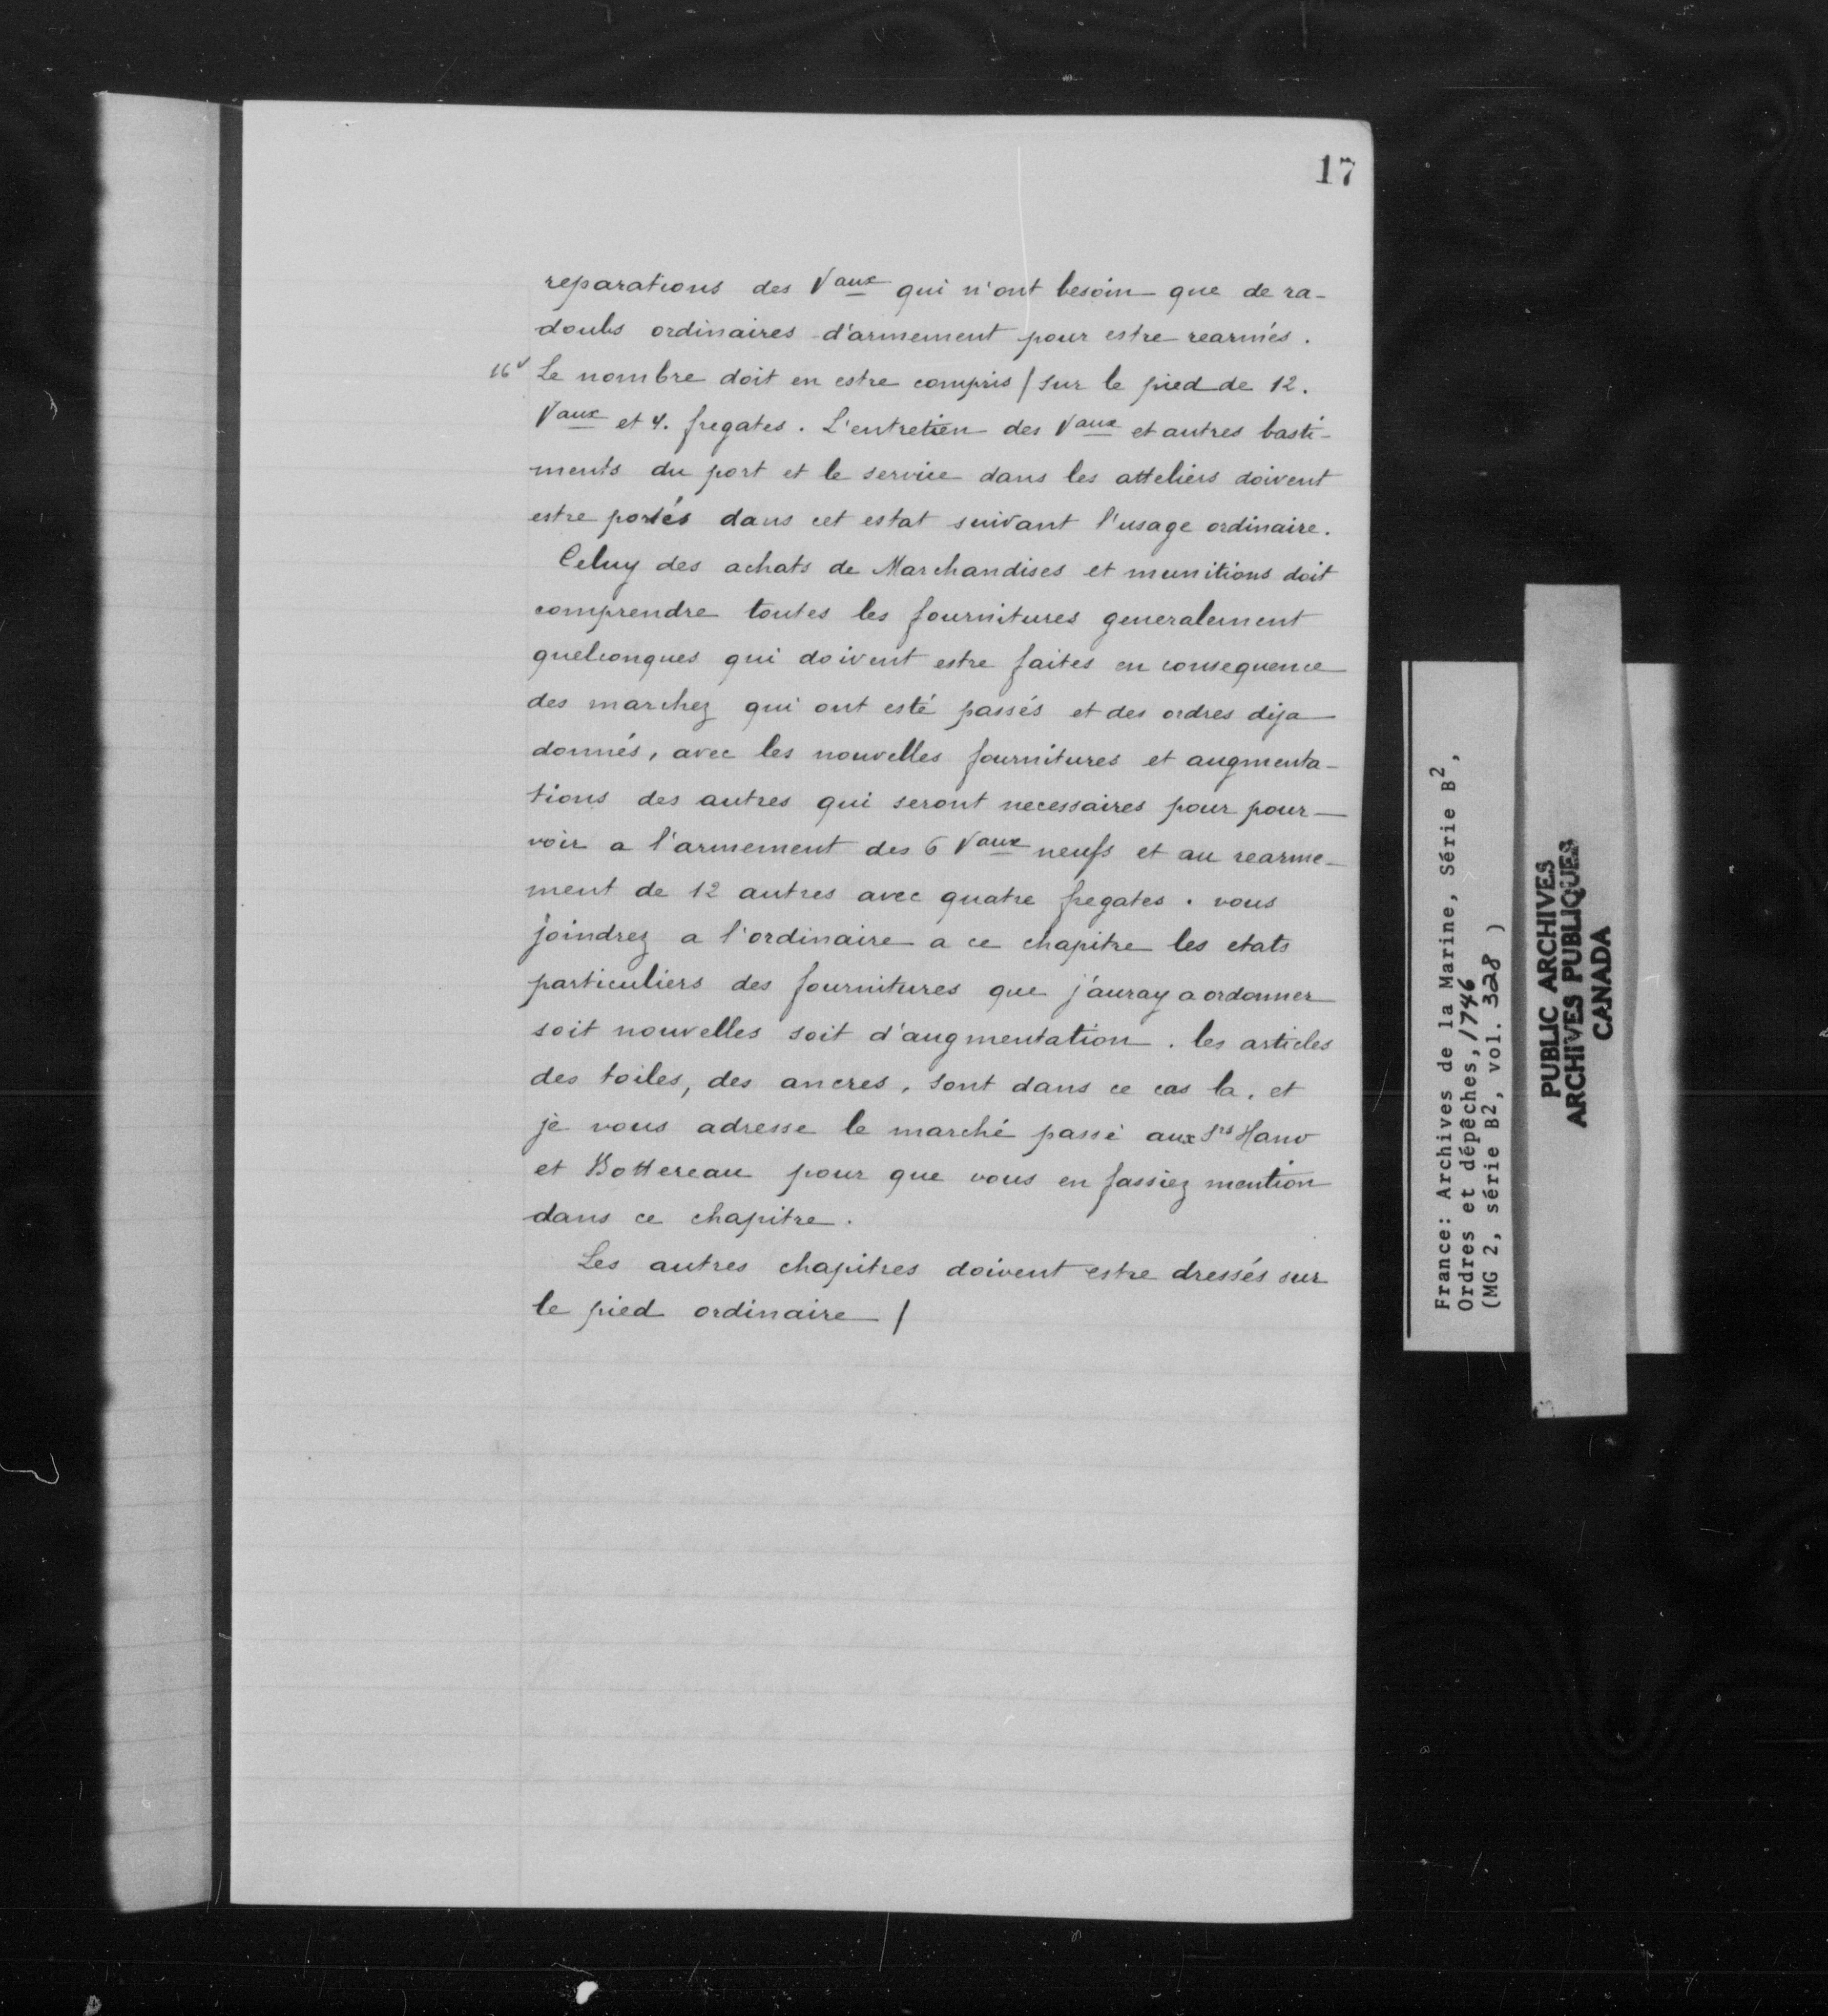 17
reparations des Vaux qui n'ont besoin que de ra-
doubs ordinaires d'armement pour estre rearmés.
16v Le nombre doit en estre compris / sur le pied de 12.
Vaux et 4. fregates. L'entretien des Vaux et autres basti-
ments du port et le service dans les atteliers doivent
estre portés dans cet estat suivant l'usage ordinaire.
Celuy des achats de Marchandises et munitions doit
comprendre toutes les fournitures generalement
quelconques qui doivent estre faites en consequence
des marchez qui ont esté passés et des ordres deja
donnés, avec les nouvelles fournitures et augmenta-
tions des autres qui seront necessaires pour pour-
voir a l'armement des 6 Vaux neufs et au rearme-
ment de 12 autres avec quatre fregates. vous
joindrez a l'ordinaire a ce chapitre les etats
particuliers des fournitures que j'auray a ordonner
soit nouvelles soit d'augmentation. les articles
des toiles, des ancres, sont dans ce cas la, et
je vous adresse le marché passé aux Srs
et Bottereau pour que vous en fassiez mention
dans ce chapitre.
Les autres chapitres doivent estre dressés sur
le pied ordinaire /
France: Archives de la Marine, Série B2,
Ordres et dépêches, 1746
(MG 2, série B2, vol. 328 )
PUBLIC ARCHIVES
ARCHIVES PUBLIQUES
CANADA